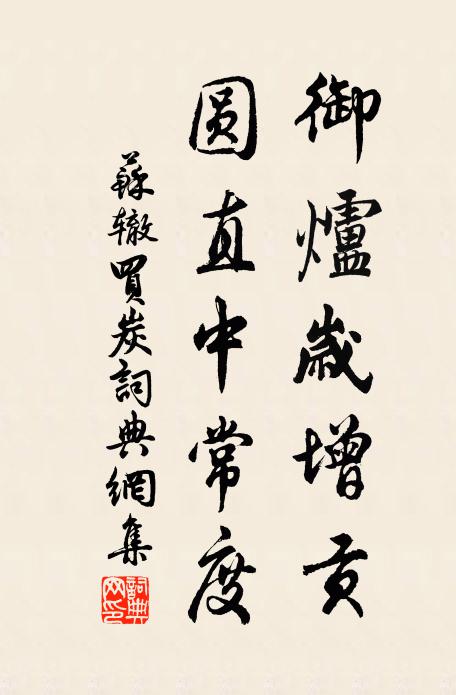 御爐歲增貢
圆直中常度
蘇辙買炭詞典網集
詞典网印